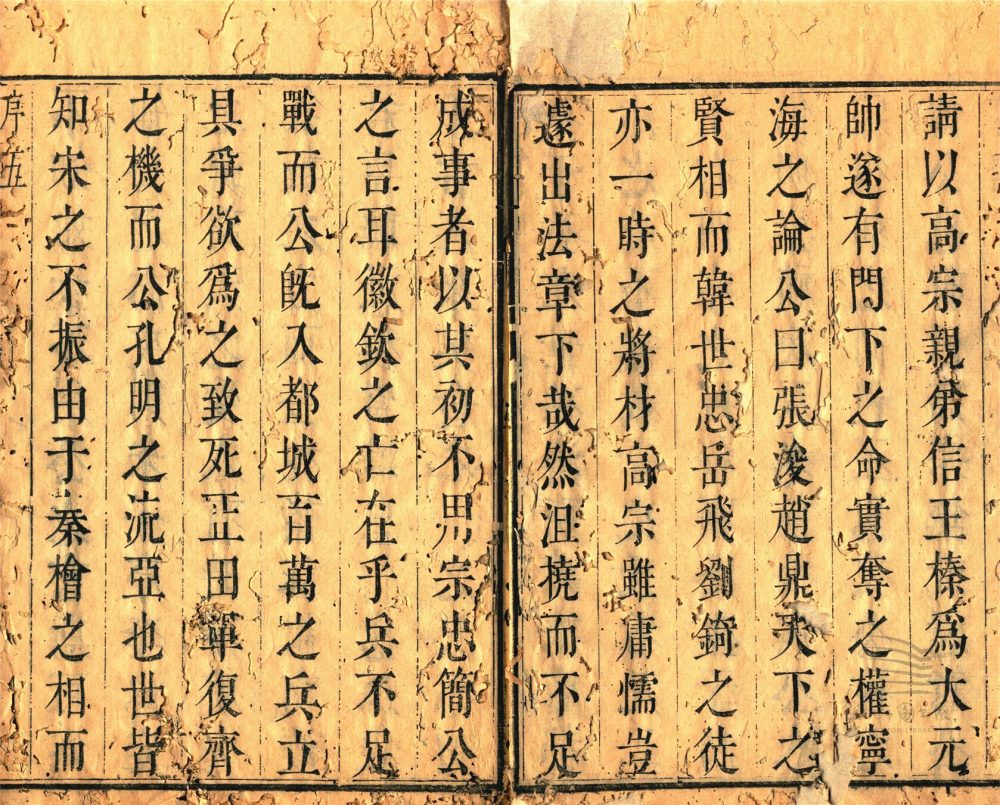 請以高宗親弟信王榛爲大元
帥遂有門下之命實奪之權寧
海之論公曰張浚趙鼎天下之
賢相而韓世忠岳飛劉錡之徒
亦一時之將材高宗雖庸懦豈
遽出法章下哉然沮撓而不足
成事者以其初不用宗忠簡公
之言耳徽欽之亡在乎兵不足
戰而公旣入都城百萬之兵立
具爭欲爲之致死正田單復齊
之機而公孔明之流亞也世皆
知宋之不振由于秦檜之相而
序五